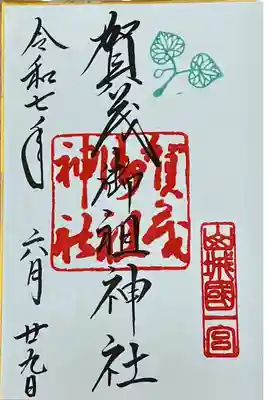 山城國一宮
賀茂御祖神社
賀茂御祖神社
令和七年 六月 廿九日